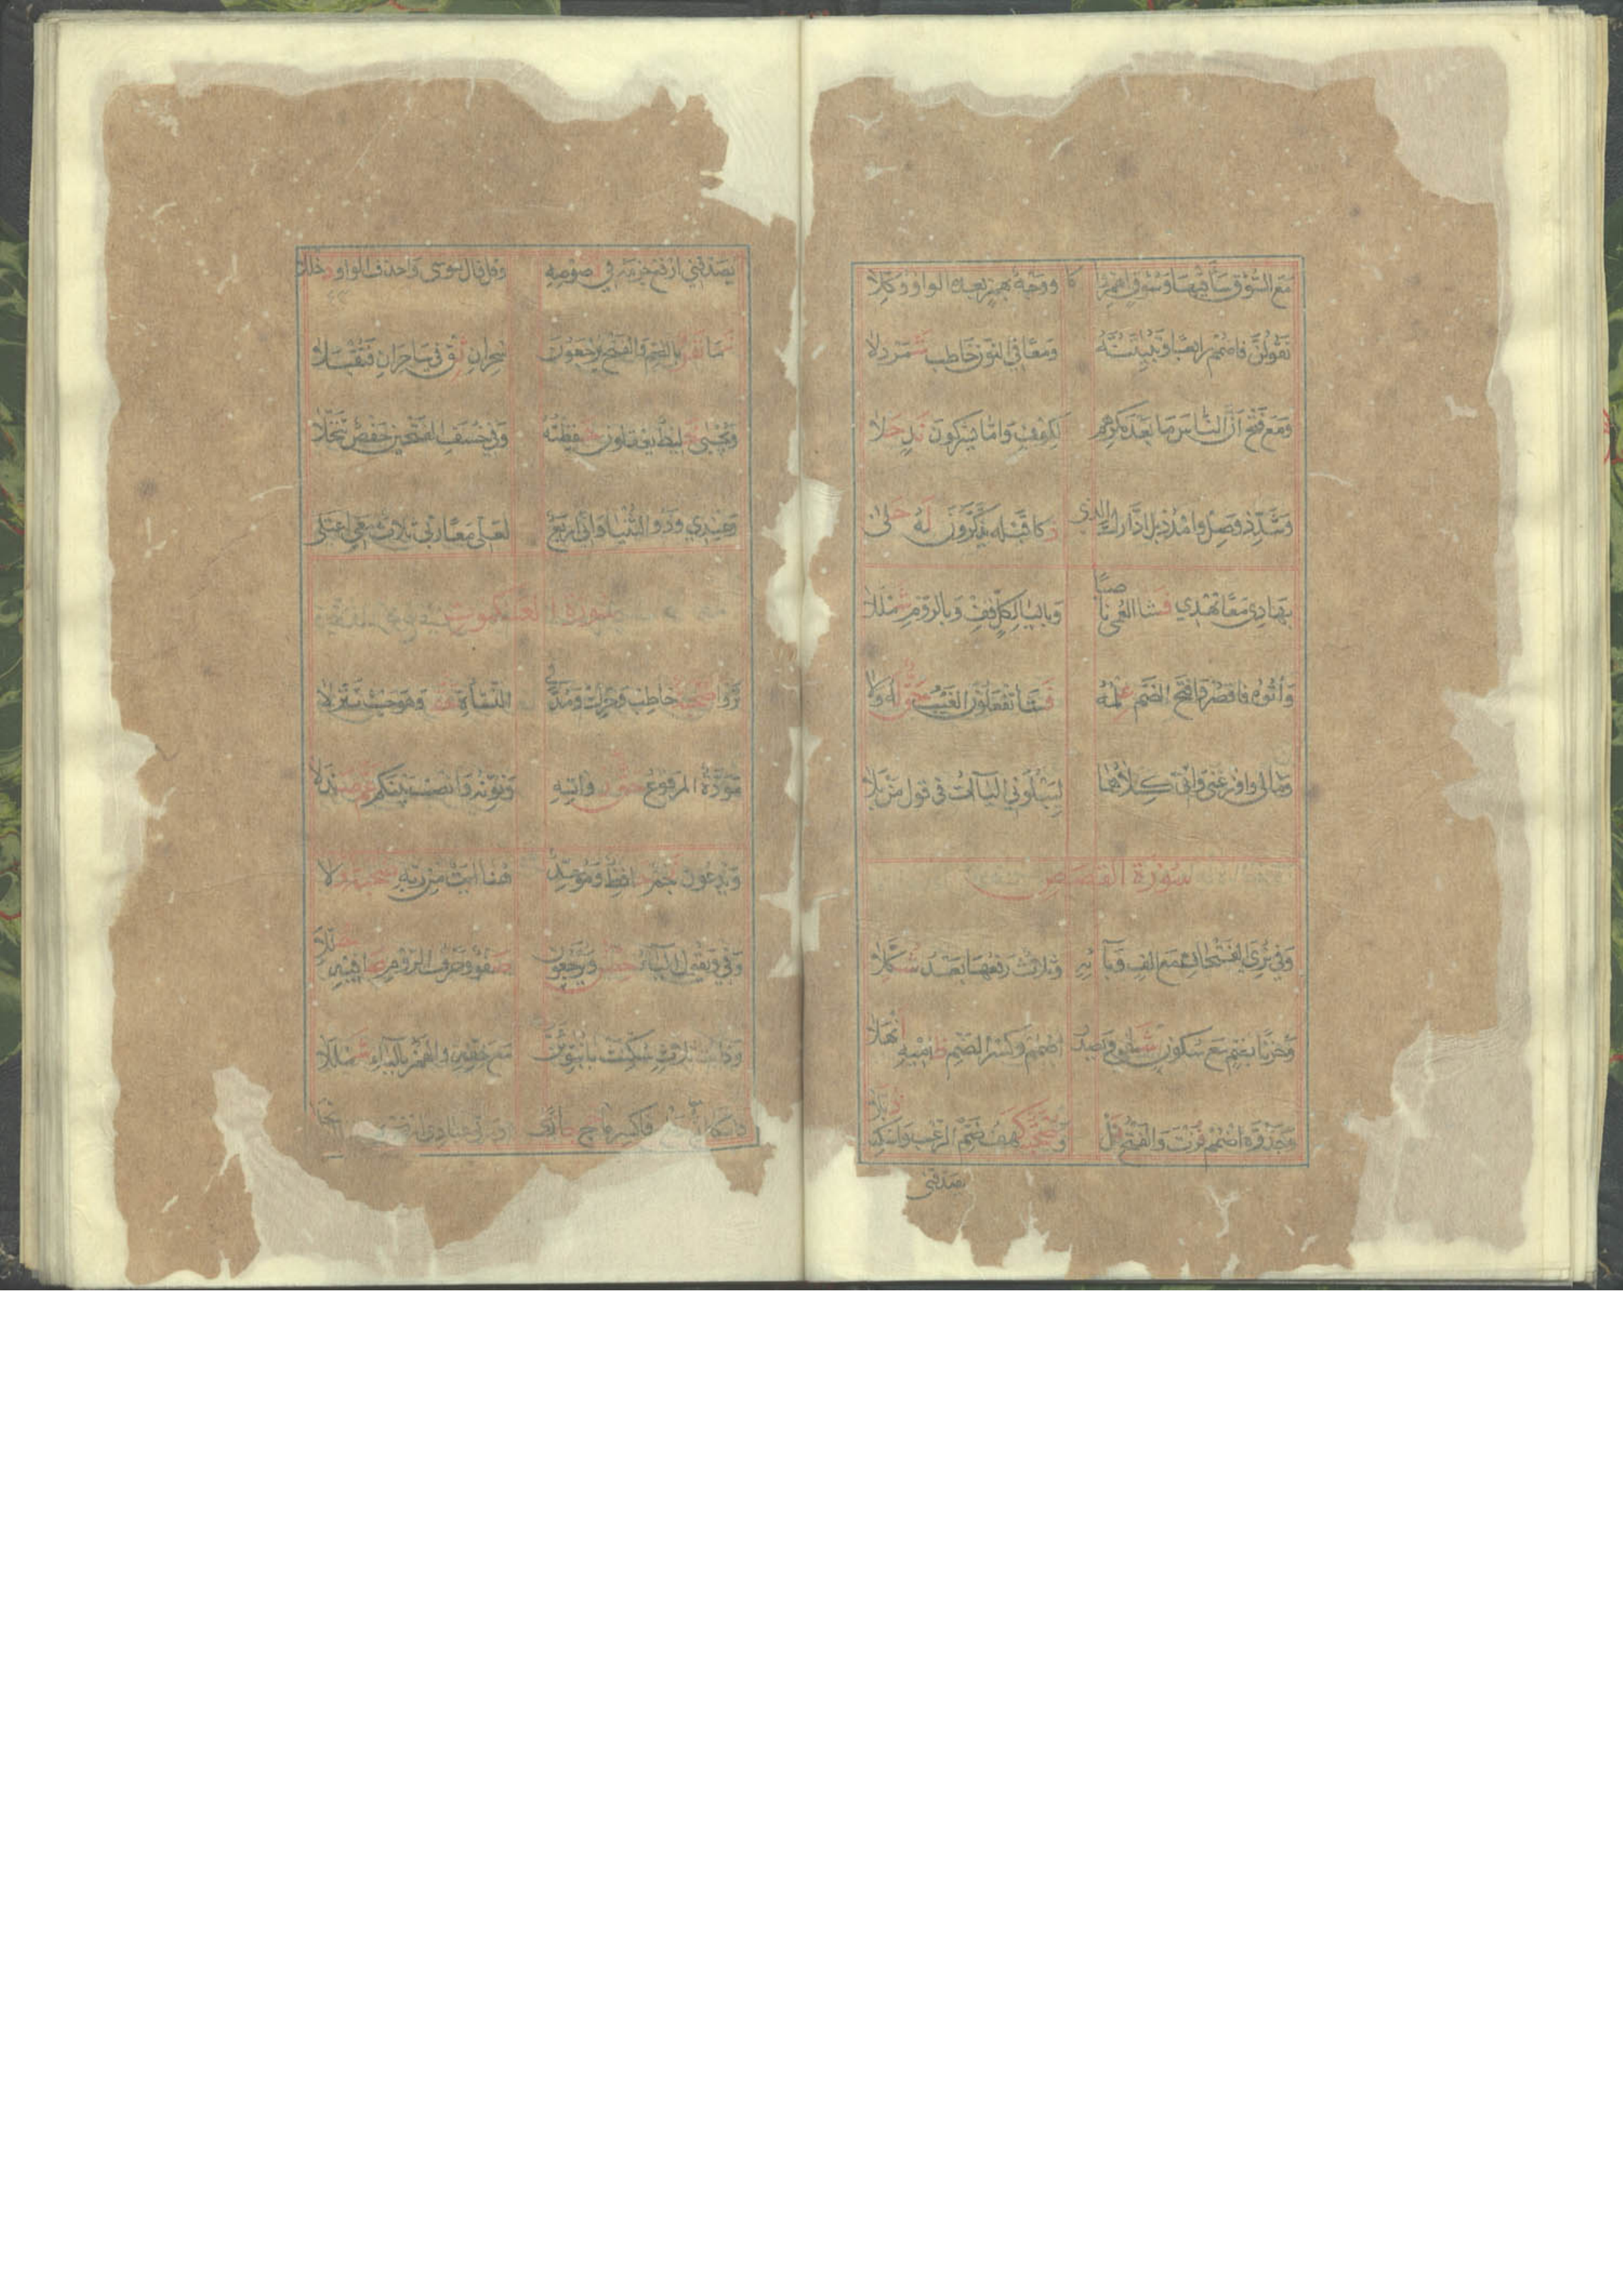 مَعَ السُّوْقِ سَأقَيْهَا وَسُوْقِ اهْمِزْ زَكَا وَوَجْهٌ بِهَمْزٍ بَعْدَهُ الوَاوُ وُكِّلَا
نَقُوْلَنَّ فَاضْمُمْ رَابِعًا وَنُبَيِّتَنَّهُ وَمَعًا فِي النُّوْنِ خَاطِبْ شَمَرْدَلَا
وَمَعْ فَتْحِ اَنَّ النَّاسَ مَا بَعْدَ مَكْرِهِمْ لِكُوْفٍ وَاَمَّا يُشْرِكُوْنَ نَدٍ حَلَا
وَشَدِّدْ وَصِلْ وَامْدُدْ بَلِ ادَّارَكَ الَّذِى ذَكَا قَبْلَهُ يَذَّكَّرُوْنَ لَهُ حُلَى
بِهَادِى مَعًا تَهْدِي فَشَا العُمْىِ نَاصِبًا وَبِاليَا لِكُلٍّ قِفْ وَبِالرُّوْمِ شَمْلَلَا
وَاٰتُوْهُ فَاقْصُرْ وَافْتَحِ الضَّمَّ عِلْمُهُ فَشَا تَفْعَلُوْنَ الغَيْبُ حَقٌّ لَهُ وَلَا
وَمَالِى وَاَوْزِعْنِي وَاِنِّى كِلَاهُمَا لِيَبْلُوَنِي اليَاٰتُ فِى قَوْلِ مَنْ بَلَا
سُوْرَةُ القَصَصِ
وَفِي نُرِيَ الفَتْحَانِ مَعْ اَلِفٍ وَيَائِهِ وَثَلَاثٌ رَفْعُهَا بَعْدُ شُكِّلَا
وَحُزْنًا بِضَمٍّ مَعْ سُكُوْنٍ شَفَا وَيَصْدُرَ اضْمُمْ وَكَسْرُ الضَّمِّ ظَامِيْهِ اَنْهَلَا
وَجَذْوَةٍ اضْمُمْ فُزْتَ وَالفَتْحَ نَلْ وَصُحْبَةُ كَهْفُ ضَمِّ الرَّهْبِ وَاسْكِنْهُ ذُبَّلَا
يصدقنى
يُصَدِّقُنِي ارْفَعْ جَزْمَهُ فِي نُصُوْصِهِ وَقُلْ قَالَ مُوْسَى وَاحْذِفِ الوَاوَ دُخْلُلَا
نَمَا نَفَرٌ بِالضَّمِّ وَالفَتْحِ يَرْجِعُوْنَ سِحْرَانِ ثِقْ فِي سَاحِرَانِ فَتُقْبَلَا
وَيُجْبَى خَلِيْطٌ يَعْقِلُوْنَ حَفِظْتُهُ وَفِي خُسِفَ الفَتْحَيْنِ حَفْصٌ تَنَخَّلَا
وَعِنْدِي وَذُو الثُّنْيَا وَاِنِّي اَرْبَعٌ لَعَلِّى مَعًا رَبِّى ثَلَاثٌ مَعِي اعْتَلَى
سُوْرَةُ العَنْكَبُوْتِ
يَرَوْا صُحْبَةٌ خَاطِبْ وَحَرِّكْ وَمُدَّ فِي النَّشَأَةِ حَقًّا وَهُوَ حَيْثُ تَنَزَّلَا
مَوَدَّةُ المَرْفُوْعُ حَقُّ رُوَاتِهِ وَنَوِّنْهُ وَانْصِبْ بَيْنَكُمْ عَمَّ صَنْدَلَا
وَيَدْعُوْنَ نَجْمٌ حَافِظٌ وَمُوَحِّدٌ هُنَا اٰيَةٌ مِنْ رَبِّهِ صُحْبَةٌ دَلَا
وَفِي وَنَقُوْلُ اليَاءُ حِصْنٌ وَيُرْجَعُوْنَ صَفْوٌ وَحَرْفُ الرُّوْمِ صَافِيْهِ حُلِّلَا
وَذَاتُ ثَلَاثٍ سُكِّنَتْ بَا نُبَوِّئَنَّ مَعْ خِفِّهِ وَالهَمْزُ بِاليَاءِ شَمْلَلَا
فَاكْسِرْ كَمَا حَجَّ